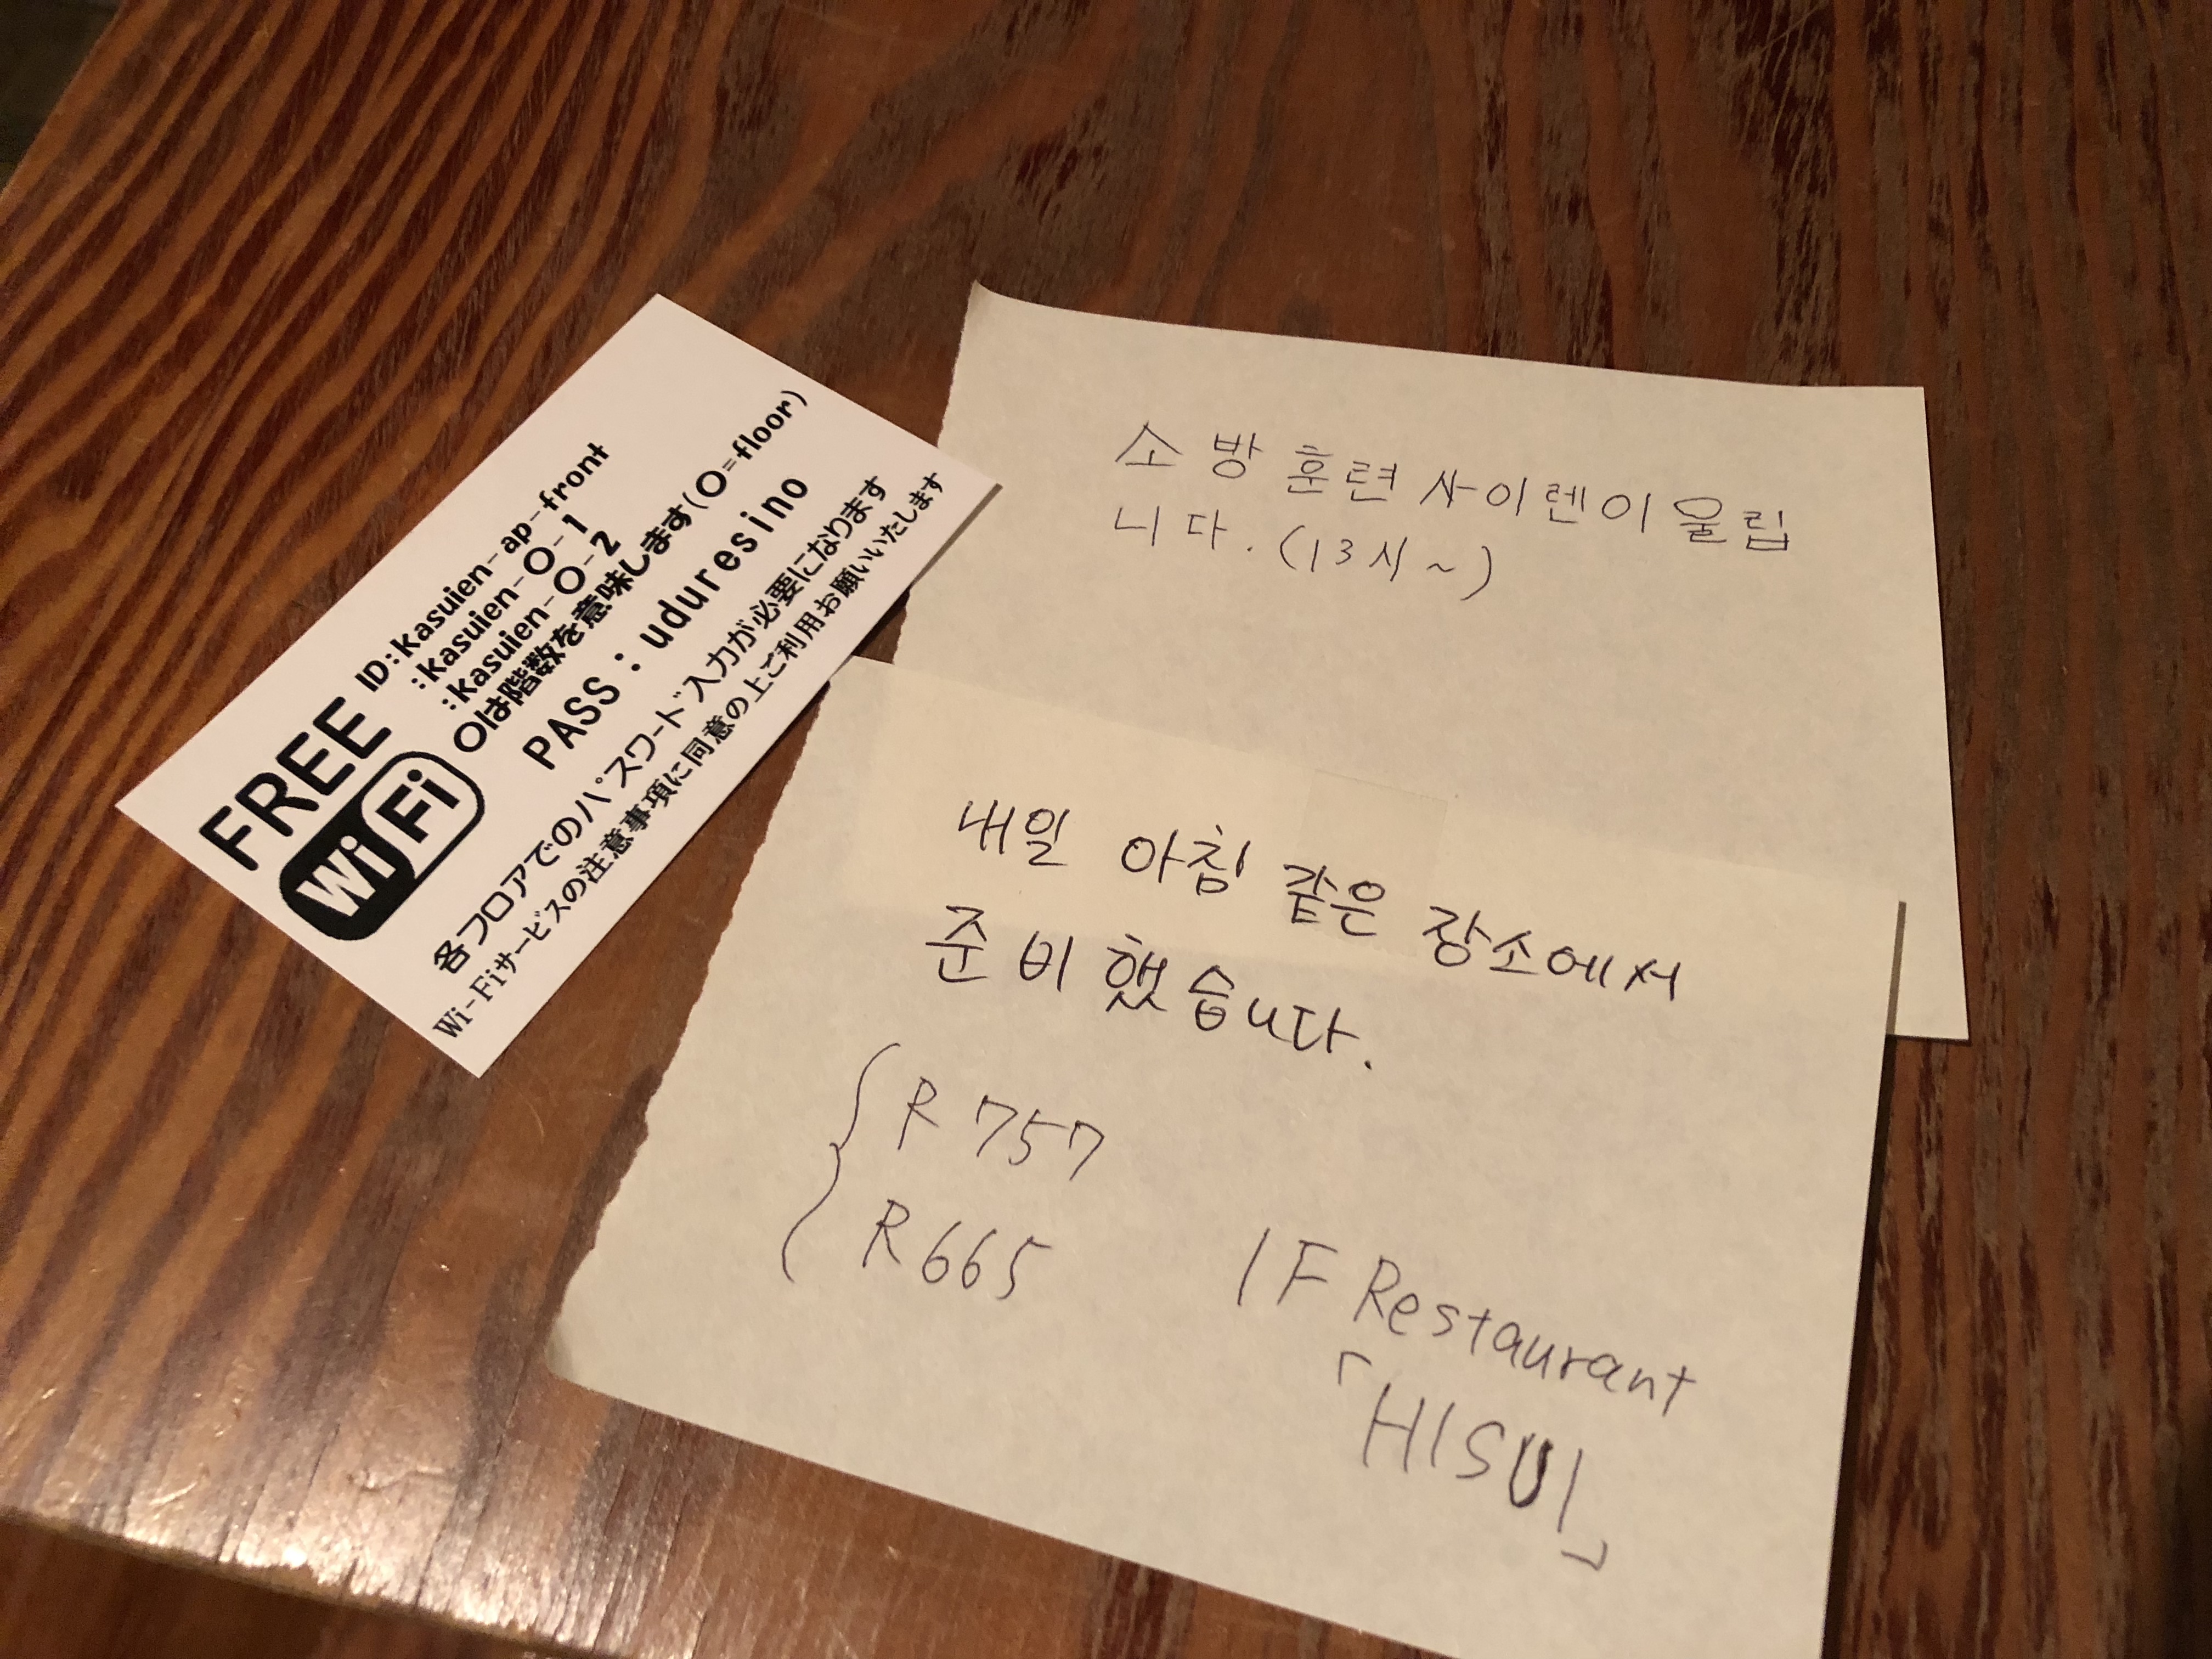 FREE
WiFi
ID:kasuien-ap-front
:kasuien-〇-1
:kasuien-〇-2
〇は階数を意味します(〇=floor)
PASS:uduresino
各フロアでのパスワード入力が必要になります
Wi-Fiサービスの注意事項に同意の上ご利用お願いいたします
소방훈련사이렌이울립
니다.(13시~)
내일 아침 같은 장소에서
준비했습니다.
R 757
R665
1F Restaurant
「HISUI」